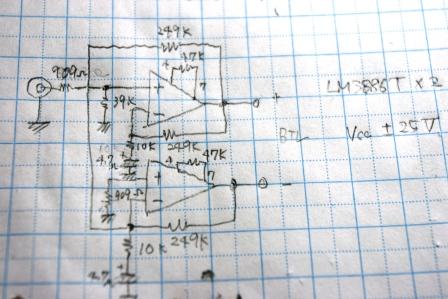 249K
909Ω
47K
+
7
39K
+
-
LM3886T x 2
10K
249K
BTL
Vcc ± 25V
4.7μ
+
47K
+
7
909Ω
-
-
10K
249K
4.7μ
+